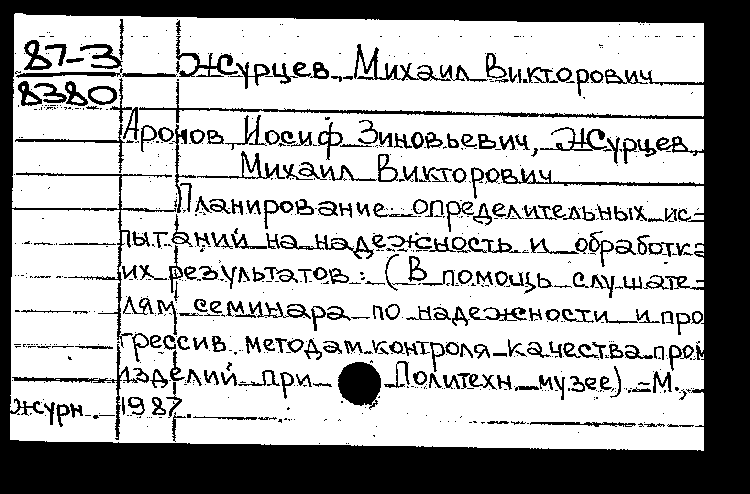 87-3 Журцев, Михаил Викторович
8380
Аронов, Иосиф Зиновьевич, Журцев,
Михаил Викторович
Планирование определительных ис=
пытаний на надежность и обработка
их результатов: (В помощь слушате=
лям семинара по надежности и про
грессив. методам контроля качества пром
изделий при Политехн. музее) -М.,
журн. 1987.